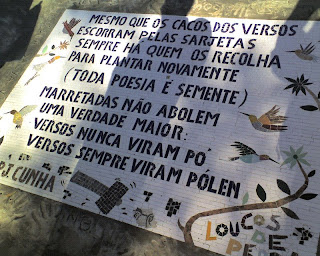 MESMO QUE OS CACOS DOS VERSOS
ESCORRAM PELAS SARJETAS
SEMPRE HÁ QUEM OS RECOLHA
PARA PLANTAR NOVAMENTE
(TODA POESIA É SEMENTE)
MARRETADAS NÃO ABOLEM
UMA VERDADE MAIOR:
VERSOS NUNCA VIRAM PÓ
VERSOS SEMPRE VIRAM PÓLEN
P.J. CUNHA
LOUCOS
DE